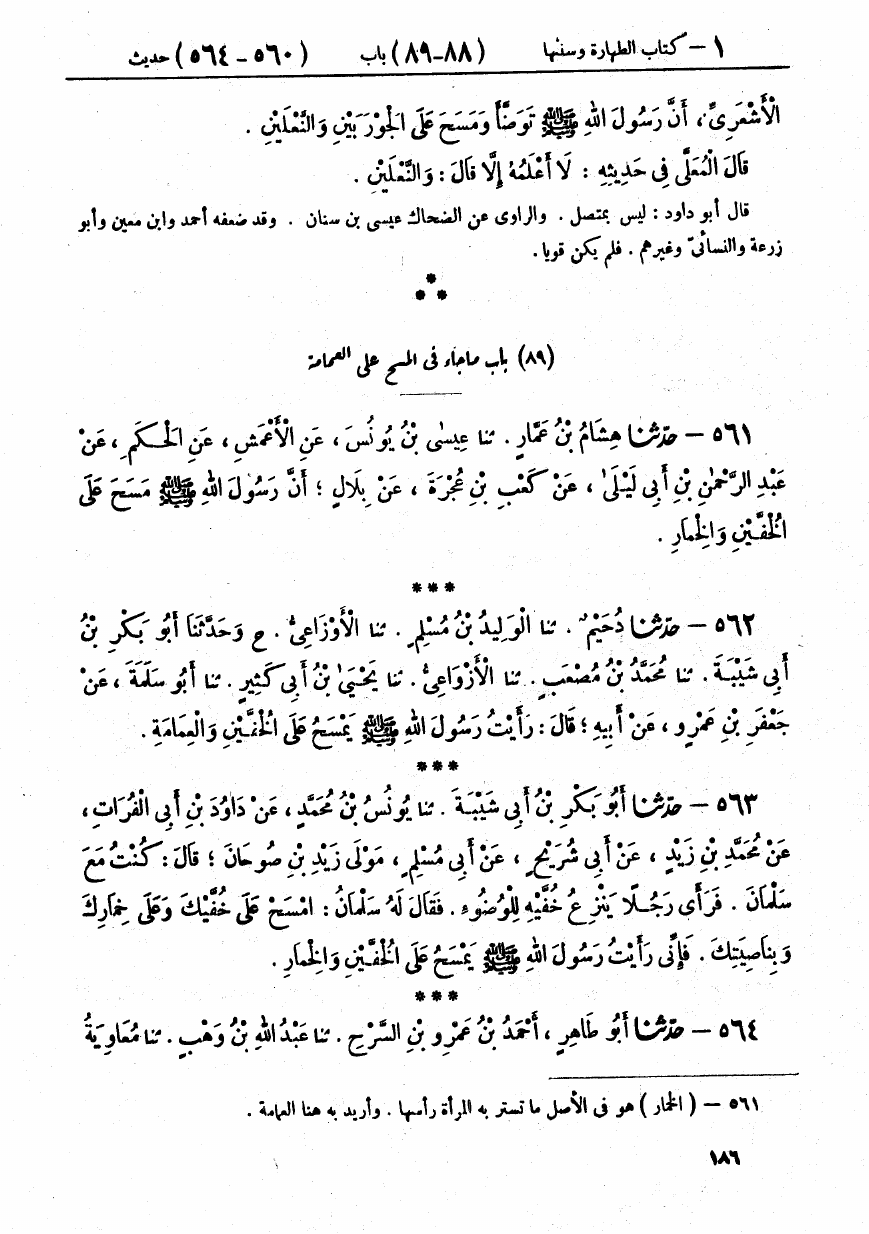 ١ – كتاب الطهارة وسننها (٨٨-٨٩) باب (٥٦٠ - ٥٦٤) حديث
الْأَشْعَرِىِّ، أَنَّ رَسُولَ اللهِ ﷺ تَوَضَّأَ وَمَسَحَ عَلَى الْجَوْرَبَيْنِ وَالنَّعْلَيْنِ .
قَالَ الْمُعَلَّى فِى حَدِيثِهِ : لَا أَعْلَمُهُ إِلَّا قَالَ : وَالنَّعْلَيْنِ .
قال أبو داود : ليس بمتصل . والراوى عن الضحاك عيسى بن سنان . وقد ضعفه أحمد وابن معين وأبو
زرعة والنسائىّ وغيرهم . فلم يكن قويا .
* * *
(٨٩) باب ماجاء فى المسح على العمامة
٥٦١ – حدّثنا هِشَامُ بْنُ عَمَّارٍ . ثنا عِيسَى بْنُ يُونُسَ ، عَنِ الْأَعْمَشِ ، عَنِ الْحَكَمِ ، عَنْ
عَبْدِ الرَّحْمٰنِ بْنِ أَبِى لَيْلَىٰ ، عَنْ كَعْبِ بْنِ عُجْرَةَ ، عَنْ بِلَالٍ ؛ أَنَّ رَسُولَ اللهِ ﷺ مَسَحَ عَلَى
الْخُفَّيْنِ وَالْخِمَارِ .
***
٥٦٢ – حدّثنا دُحَيْمٌ . ثنا الْوَلِيدُ بْنُ مُسْلِمٍ . ثنا الْأَوْزَاعِىُّ . ح وَحَدَّثَنَا أَبُو بَكْرِ بْنُ
أَبِى شَيْبَةَ . ثنا مُحَمَّدُ بْنُ مُصْعَبٍ . ثنا الْأَزْوَاعِىُّ . ثنا يَحْيَىٰ بْنُ أَبِى كَثِيرٍ . ثنا أَبُو سَلَمَةَ ، عَنْ
جَعْفَرِ بْنِ عَمْرٍو ، عَنْ أَبِيهِ ؛ قَالَ : رَأَيْتُ رَسُولَ اللهِ ﷺ يَمْسَحُ عَلَى الْخُفَّيْنِ وَالْعِمَامَةِ .
***
٥٦٣ – حدّثنا أَبُو بَكْرِ بْنُ أَبِى شَيْبَةَ . ثنا يُونُسُ بْنُ مُحَمَّدٍ ، عَنْ دَاوُدَ بْنِ أَبِى الْفُرَاتِ ،
عَنْ مُحَمَّدِ بْنِ زَيْدٍ ، عَنْ أَبِى شُرَيْحٍ ، عَنْ أَبِى مُسْلِمٍ ، مَوْلَى زَيْدِ بْنِ صُوحَانَ ؛ قَالَ : كُنْتُ مَعَ
سَلْمَانَ . فَرَأَى رَجُلًا يَنْزِعُ خُفَّيْهِ لِلْوُضُوءِ . فَقَالَ لَهُ سَلْمَانُ : امْسَحْ عَلَى خُفَّيْكَ وَعَلَى خِمَارِكَ
وَبِنَاصِيَتِكَ . فَإِنِّى رَأَيْتُ رَسُولَ اللهِ ﷺ يَمْسَحُ عَلَى الْخُفَّيْنِ وَالْخِمَارِ .
***
٥٦٤ – حدّثنا أَبُو طَاهِرٍ ، أَحْمَدُ بْنُ عَمْرِو بْنِ السَّرْحِ . ثنا عَبْدُ اللهِ بْنُ وَهْبٍ . ثنا مُعَاوِيَةُ
٥٦١ – ( الخمار ) هو فى الأصل ما تستر به المرأة رأسها . وأريد به هنا العمامة .
١٨٦